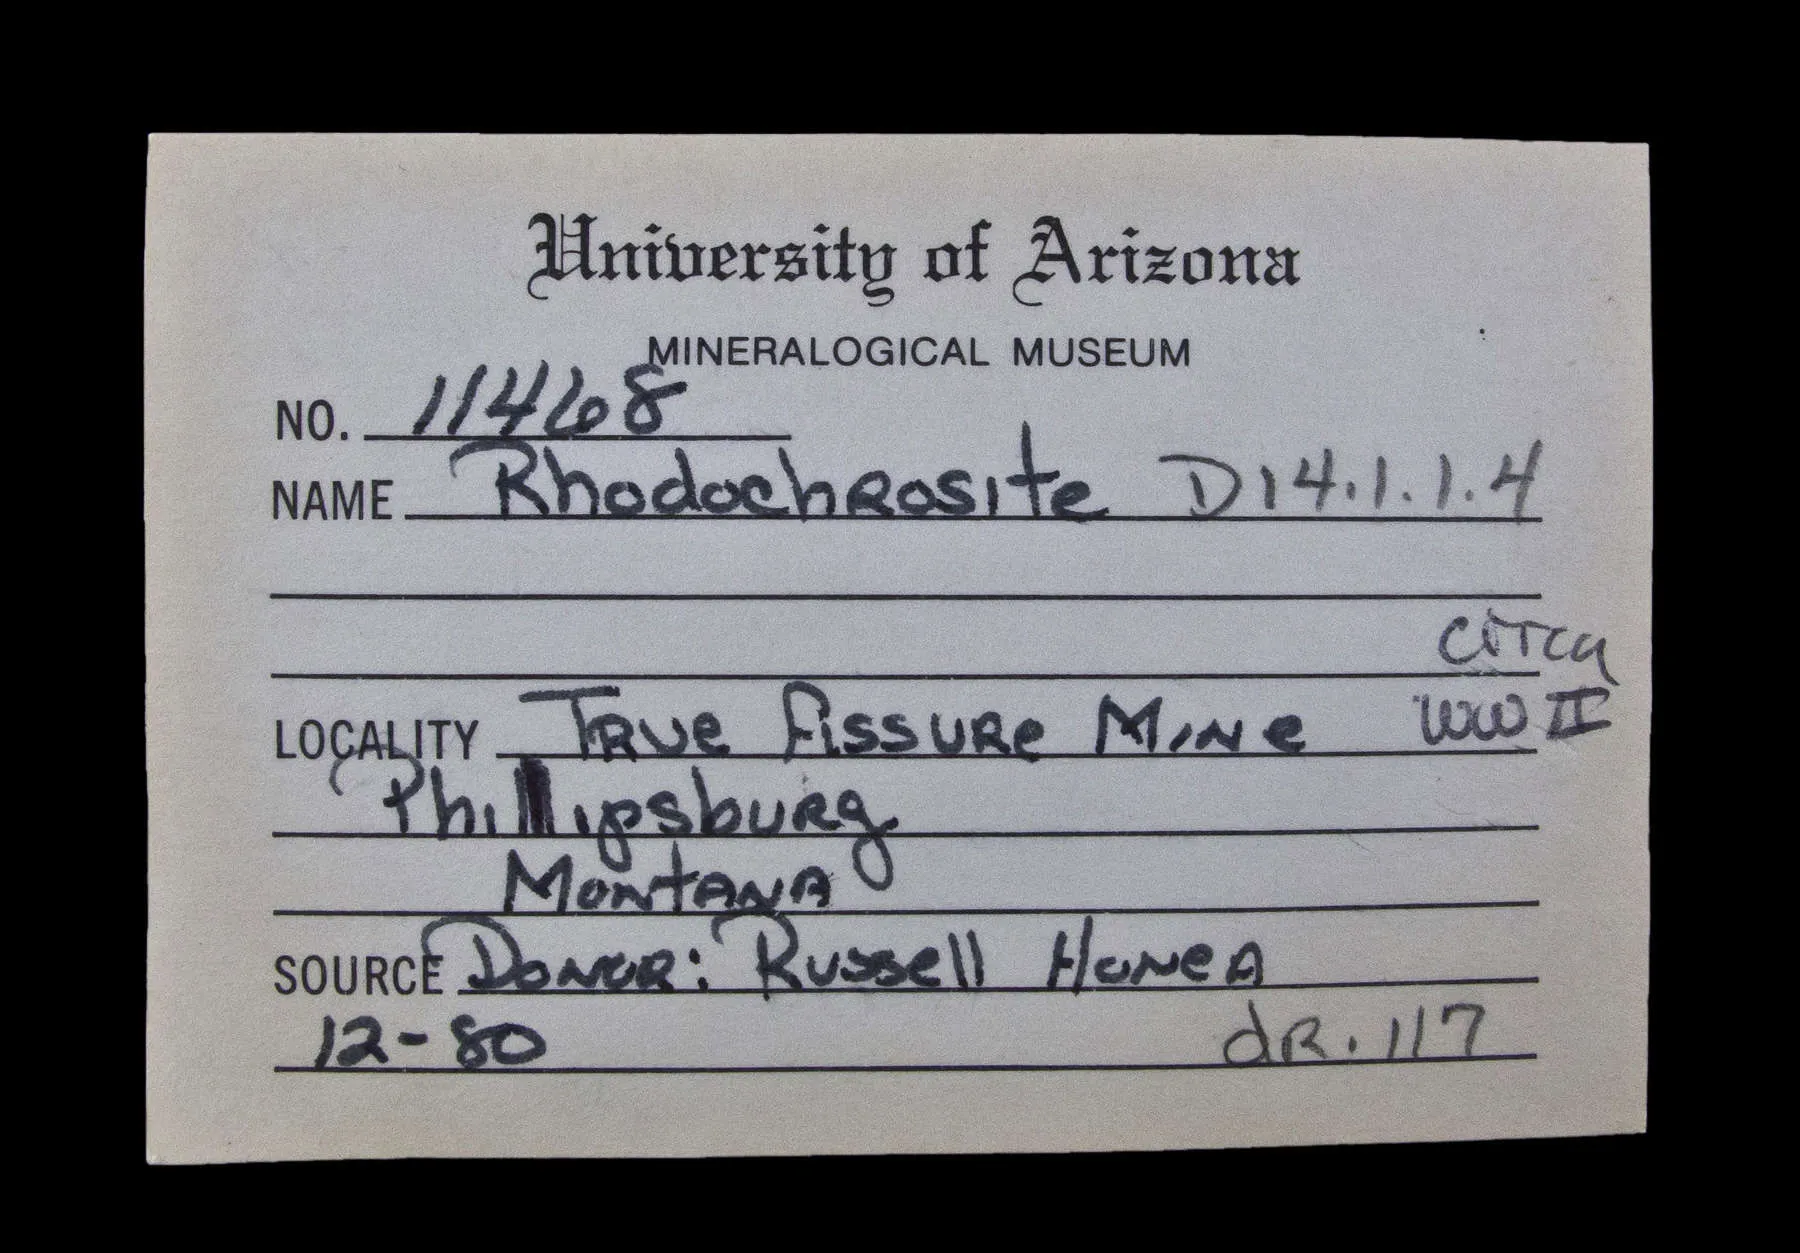 University of Arizona
MINERALOGICAL MUSEUM
NO. 11468
NAME Rhodochrosite D14.1.1.4
circa
LOCALITY True Fissure Mine WWII
Phillipsburg
Montana
SOURCE Donor: Russell Honea
12-80 dR. 117